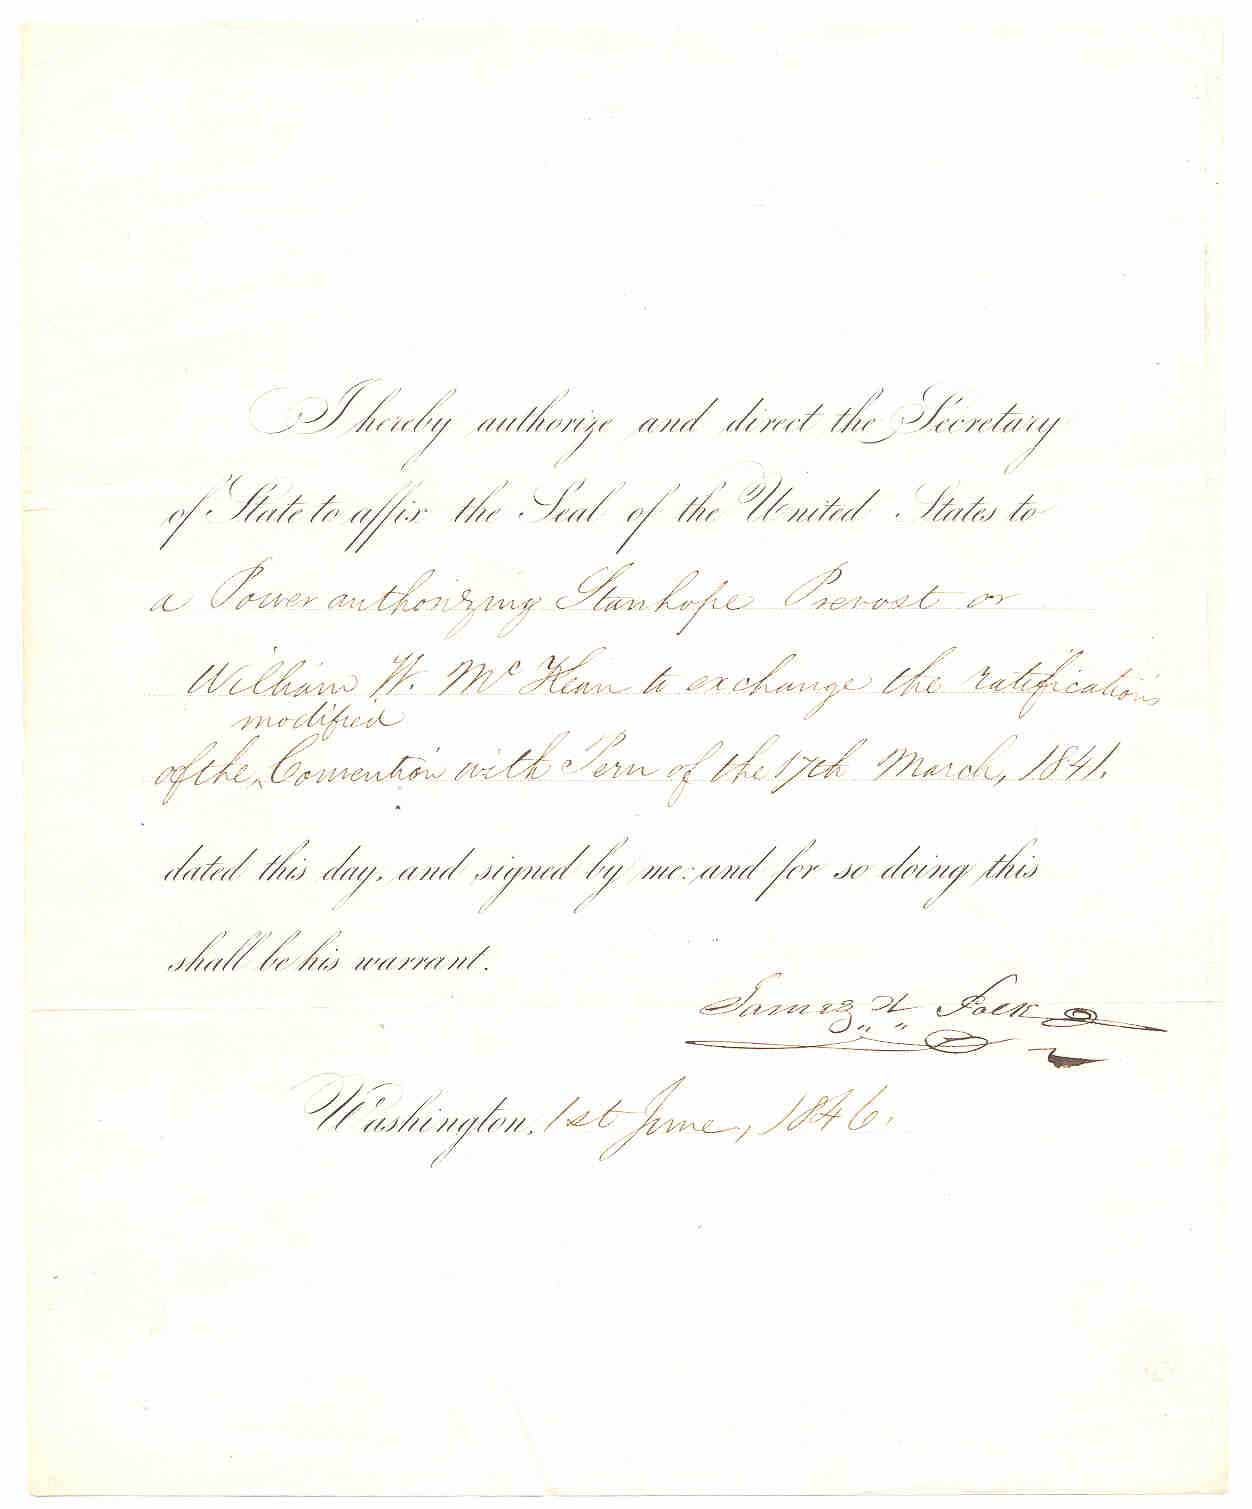 I hereby authorize and direct the Secretary
of State to affix the Seal of the United States to
a Power authorizing Stanhope Prevost or
William W. McKean to exchange the ratifications
modified
of the ‸ Convention with Peru of the 17th March, 1841.
dated this day, and signed by me: and for so doing this
shall be his warrant.
James K Polk
Washington, 1st June, 1846.